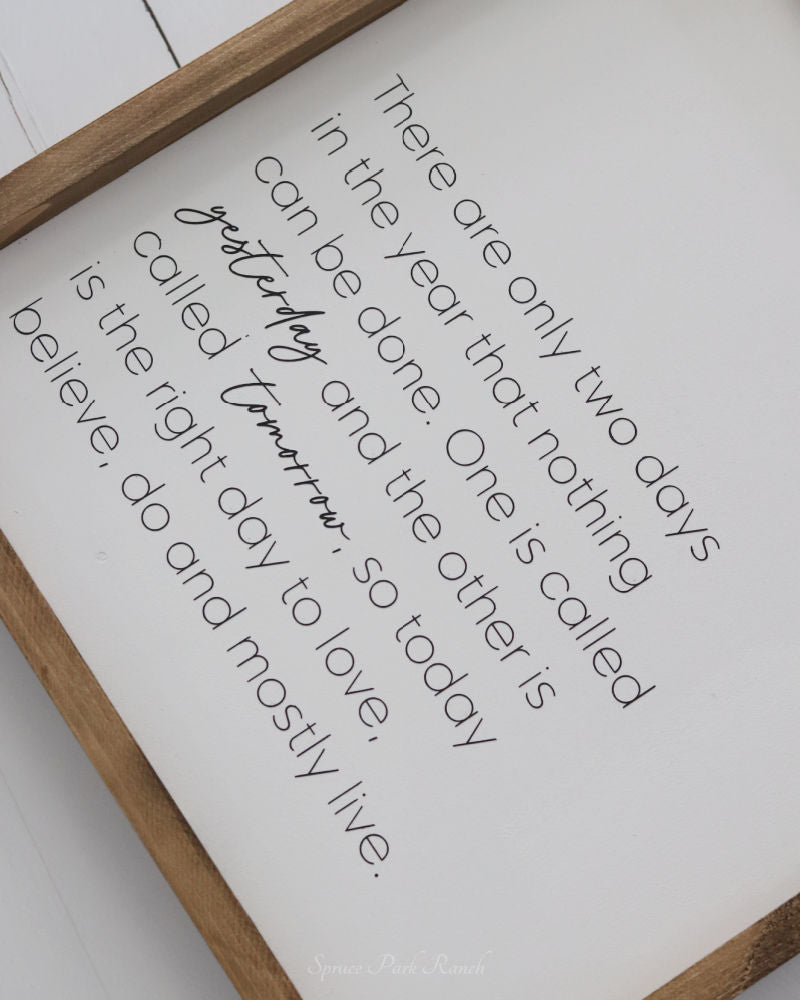 There are only two days
in the year that nothing
can be done. One is called
yesterday and the other is
called tomorrow, so today
is the right day to love,
believe, do and mostly live.
Spruce Park Ranch